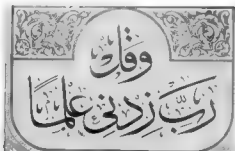 وقل
رب زدني علمًا